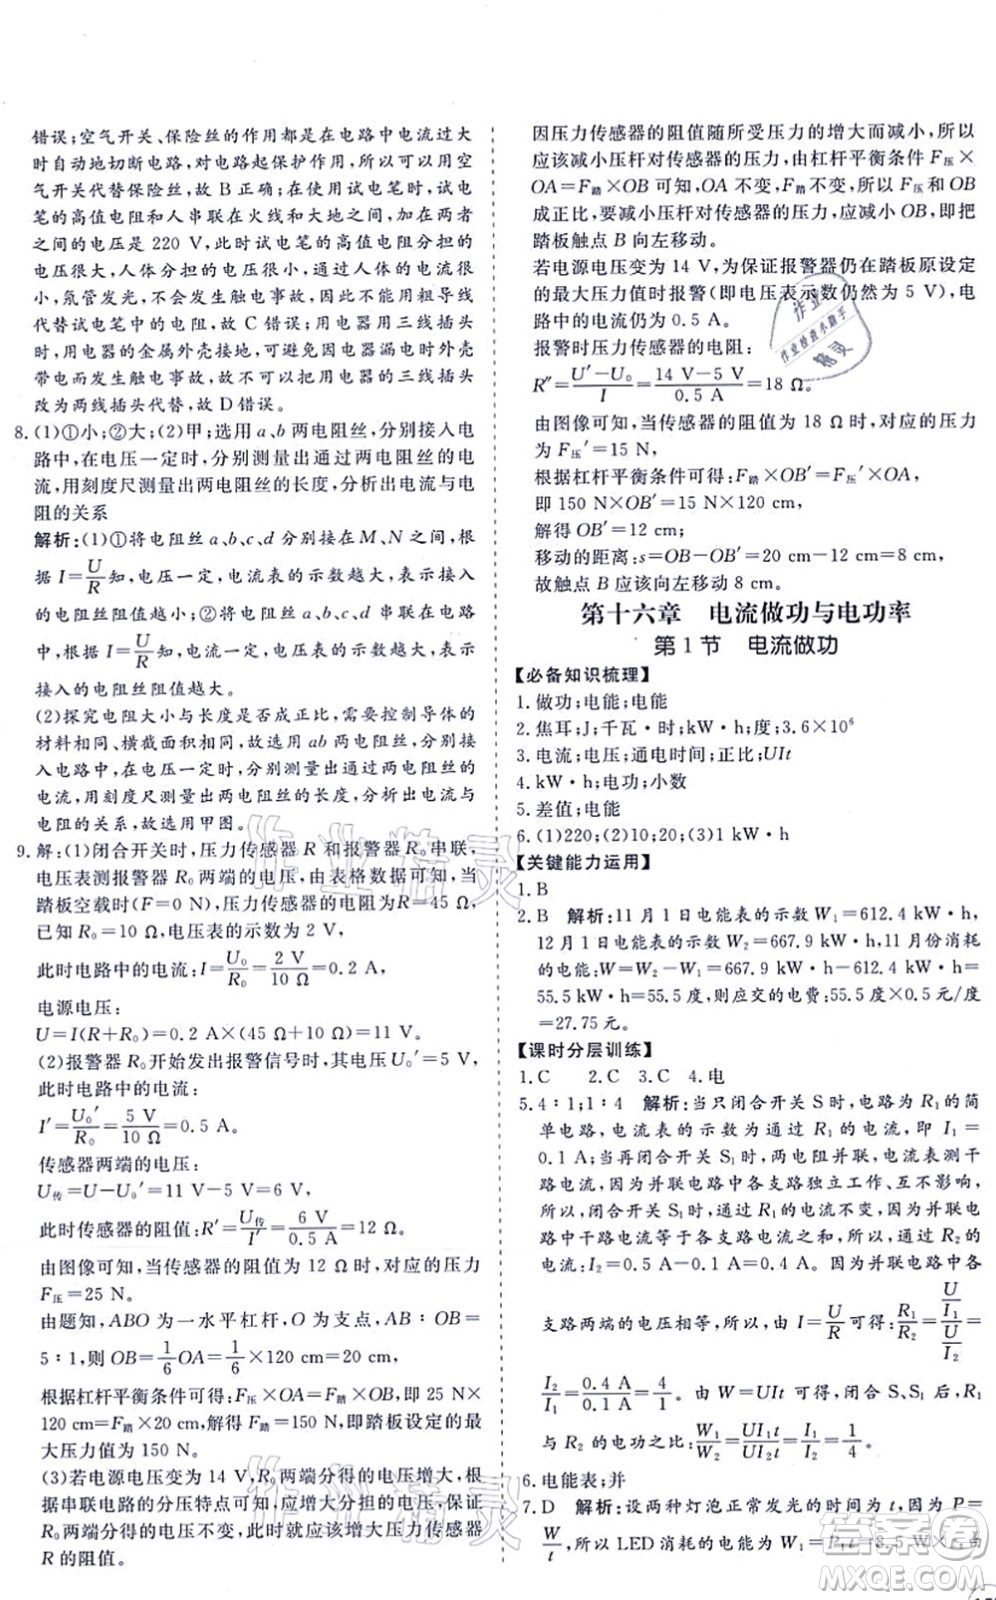 错误;空气开关、保险丝的作用都是在电路中电流过大
时自动地切断电路,对电路起保护作用,所以可以用空
气开关代替保险丝,故 B 正确;在使用试电笔时,试电
笔的高值电阻和人串联在火线和大地之间,加在两者
之间的电压是 220 V,此时试电笔的高值电阻分担的
电压很大,人体分担的电压很小,通过人体的电流很
小,氖管发光,不会发生触电事故,因此不能用粗导线
代替试电笔中的电阻,故 C 错误;用电器用三线插头
时,用电器的金属外壳接地,可避免因用电器漏电外壳
带电而发生触电事故,所以用电器的三线插头不可以
改为两线插头代替,故 D 错误。
8.(1)①小;②大;(2)甲;选用 a、b 两电阻丝,分别接入电
路中,在电压一定时,分别测量出通过两电阻丝的电
流,用刻度尺测量出两电阻丝的长度,分析出电流与电
阻的关系
解析:(1)①将电阻丝 a、b、c、d 分别接在 M、N 之间,根
据 I=U/R知,电压一定,电流表的示数越大,接入的电
阻丝阻值越小;②将电阻丝 a、b、c、d 串联在电路中,根
据 I=U/R知,电压一定,电流表的示数越小,电路中连
接入的电阻丝阻值越大。
(2)探究电阻大小与长度是否成正比,要控制导体的
材料相同、横截面积相同,故选用 ab 两电阻丝,分别
接入电路中,在电压一定时,分别测量出两电阻丝的
电流,用刻度尺测量出两电阻丝的长度,分析出电流与
电阻的关系,故选用甲图。
9.解:(1)闭合开关时,压力传感器 R 和报警器 R₀ 串联,
电压表测报警器 R₀ 两端的电压,由表格数据可知,当
踏板空载时(F=0 N),压力传感器的电阻为R=45 Ω,
已知 R₀=10 Ω,电压表的示数为 2 V,
此时电路中的电流:I=U₀/R₀=2 V/10 Ω=0.2 A,
电源电压:
U=I(R+R₀)=0.2 A×(45 Ω+10 Ω)=11 V。
(2)报警器 R₀ 开始发出报警信号时,其电压 U₀′=5 V,
此时电路中的电流:
I′=U₀′/R₀=5 V/10 Ω=0.5 A。
传感器两端的电压:
U传=U−U₀′=11 V−5 V=6 V,
此时传感器的阻值:R′=U传/I′=6 V/0.5 A=12 Ω。
由图像可知,当传感器的阻值为 12 Ω 时,对应的压力
F压=25 N。
由题知,ABO 为一水平杠杆,O 为支点,AB∶OB=
5∶1,则 OB=1/6OA=1/6×120 cm=20 cm,
根据杠杆平衡条件可得:F压×OA=F踏×OB,即 25 N×
120 cm=F踏×20 cm,解得 F踏=150 N,即踏板设定的最
大压力值为 150 N。
(3)若电源电压变为 14 V,R₀ 两端分得的电压增大,根
据串联电路的分压特点可知,应增大分担的电压,保证
R₀ 两端的电压不变,故此时应增大压力传感器
R 的阻值。
因压力传感器的阻值随所受压力的增大而减小,所以
应该减小压杆对传感器的压力,由杠杆平衡条件 F压×
OA=F踏×OB 可知,OA 不变,F踏不变,所以 F压 和 OB
成正比,要减小压杆对传感器的压力,应减小 OB,即把
踏板触点 B 向左移动。
若电源电压变为 14 V,为保证报警器仍在踏板原设定
的最大压力值时报警(即电压表示数仍然为 5 V),电
路中的电流仍为 0.5 A。
报警时压力传感器的电阻:
R″=(U′−U₀)/I=(14 V−5 V)/0.5 A=18 Ω。
由图像可知,当传感器的阻值为 18 Ω 时,对应的压力
为 F压′=15 N,
根据杠杆平衡条件可得:F踏×OB′=F压′×OA,
即 150 N×OB′=15 N×120 cm,
解得 OB′=12 cm;
移动的距离:s=OB−OB′=20 cm−12 cm=8 cm,
故触点 B 应该向左移动 8 cm。
第十六章 电流做功与电功率
第 1 节 电流做功
【必备知识梳理】
1.做功;电能;电能
2.焦耳;J;千瓦·时;kW·h;度;3.6×10⁶
3.电流;电压;通电时间;正比;UIt
4.kW·h;电功;小数
5.差值;电能
6.(1)220;(2)10;20;(3)1 kW·h
【关键能力运用】
1.B
2.B 解析:11 月 1 日电能表的示数 W₁=612.4 kW·h,
12 月 1 日电能表的示数 W₂=667.9 kW·h,11 月份消耗
的电能:W=W₂−W₁=667.9 kW·h−612.4 kW·h=
55.5 kW·h=55.5 度,则应交的电费:55.5 度×0.5 元/度
=27.75 元。
【课时分层训练】
1.C 2.C 3.C 4.电
5.4∶1;1∶4 解析:当只闭合开关 S 时,电路为 R₁ 的简
单电路,电流表的示数为通过 R₁ 的电流,即 I₁=
0.1 A;当再闭合开关 S₁ 时,两电阻并联,电流表测干
路电流,因为并联电路中各支路独立工作、互不影响,
所以,闭合开关 S₁ 后通过 R₁ 的电流不变,因为并联电
路中干路电流等于各支路电流之和,所以通过 R₂ 的
电流:I₂=0.5 A−0.1 A=0.4 A,因为并联电路中各
支路两端的电压相等,所以,由 I=U/R可得:R₁/R₂=(U/I₁)/(U/I₂)=
I₂/I₁=0.4 A/0.1 A=4/1。由 W=UIt 可得,闭合 S、S₁ 后,R₁
与 R₂ 的电功之比:W₁/W₂=UI₁t/UI₂t=I₁/I₂=1/4。
6.电能表;并
7.D 解析:设两种灯泡正常发光的时间为 t,由 P=
W/t,所以 LED 消耗的电能为 W₁=P₁t=8.5 W×t,由
作业精灵
作业精灵
作业检查小助手
精灵
答案圈
MXQE.COM